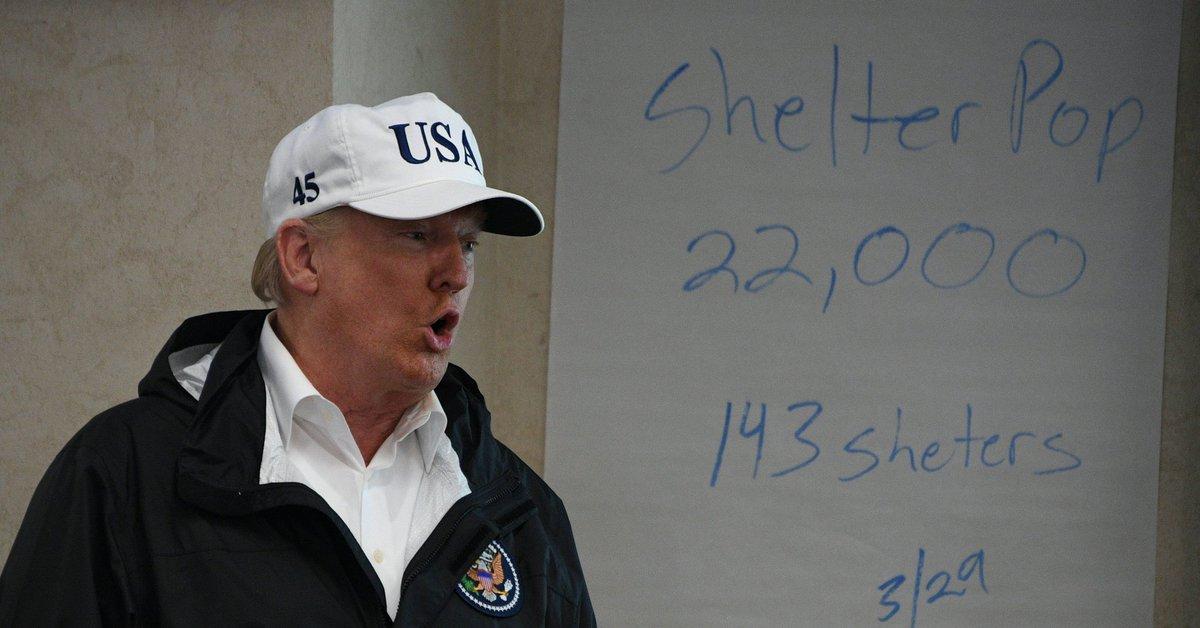 USA
45
Shelter Pop
22,000
143 sheters
3/29